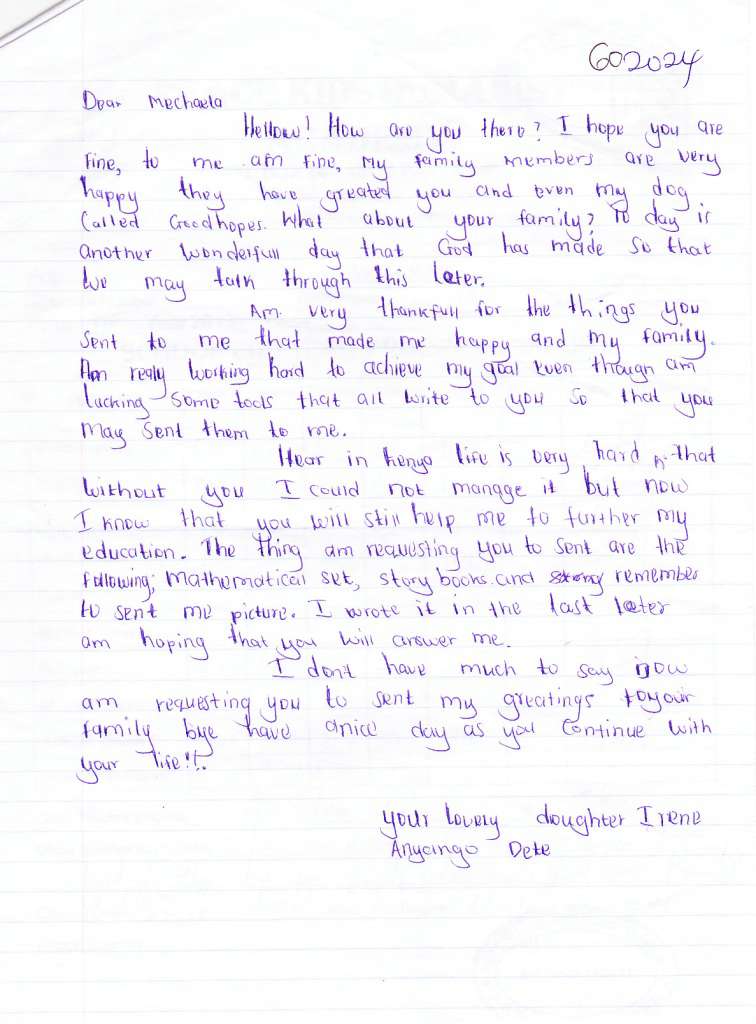 602024
Dear Mechaela
Hellow! How are you there? I hope you are
fine, to me am fine, my family members are very
happy they have greated you and even my dog
Called Goodhopes. What about your family? To day is
another wonderfull day that God has made so that
we may talk through this later.
Am very thankfull for the things you
sent to me that made me happy and my family.
Am realy working hard to achieve my goal even though am
lacking some tools that all write to you so that you
may sent them to me.
Hear in kenya life is very hard that
without you I could not manage it but now
I know that you will still help me to further my
education. The thing am requesting you to sent are the
following; mathematical set, story books. and remember
to sent me picture. I wrote it in the last later
am hoping that you will answer me.
I dont have much to say now
am requesting you to sent my greatings toyour
family bye have anice day as you continue with
your life!!.
your lovely doughter Irene
Anyango Dete